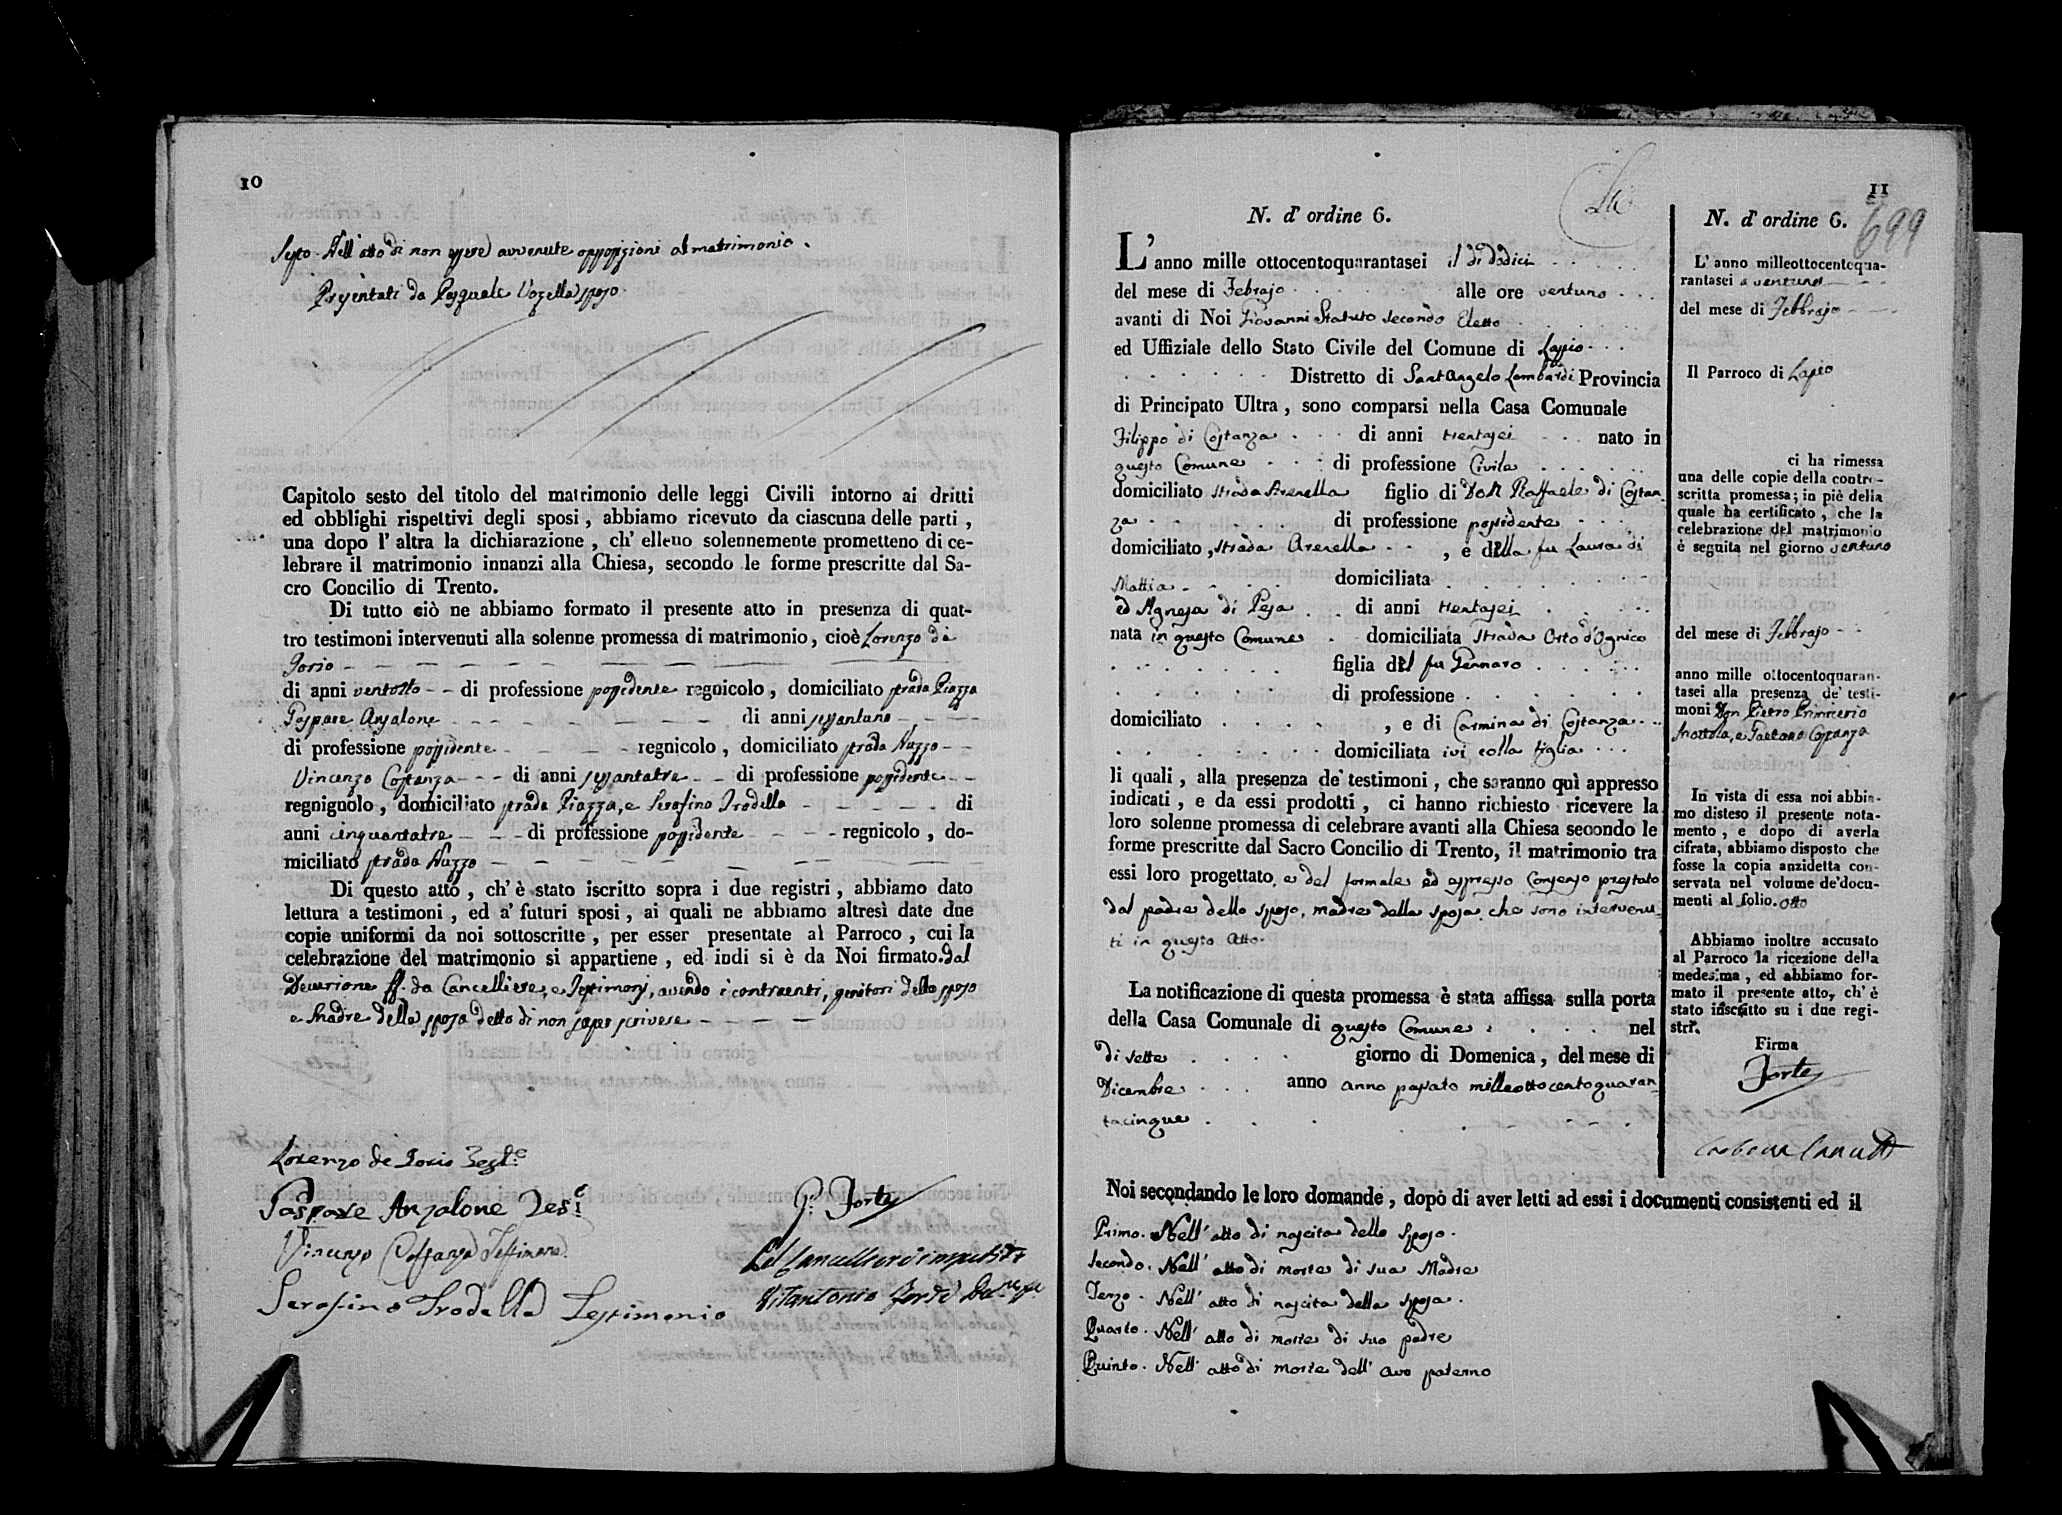 10
Sesto. Nell' atto di non essere avvenute opposizioni al matrimonio.
Presentati da Pasquale Vozella sposo.
Capitolo sesto del titolo del matrimonio delle leggi Civili intorno ai dritti
ed obblighi rispettivi degli sposi, abbiamo ricevuto da ciascuna delle parti,
una dopo l'altra la dichiarazione, ch' elleno solennemente prometteno di ce-
lebrare il matrimonio innanzi alla Chiesa, secondo le forme prescritte dal Sa-
cro Concilio di Trento.
Di tutto ciò ne abbiamo formato il presente atto in presenza di quat-
tro testimoni intervenuti alla solenne promessa di matrimonio, cioè Lorenzo de
Iorio
di anni ventotto di professione possidente regnicolo, domiciliato strada Piazza
Gaspare Anzalone di anni sessantuno
di professione possidente regnicolo, domiciliato strada Nuzzo
Vincenzo Costanza di anni sessantatre di professione possidente
regnignolo, domiciliato strada Piazza, e Serafino Trodella di
anni cinquantatre di professione possidente regnicolo, do-
miciliato strada Nuzzo
Di questo atto, ch' è stato iscritto sopra i due registri, abbiamo dato
lettura a testimoni, ed a' futuri sposi, ai quali ne abbiamo altresì date due
copie uniformi da noi sottoscritte, per esser presentate al Parroco, cui la
celebrazione del matrimonio si appartiene, ed indi si è da Noi firmato. dal
Decurione ff. da Cancelliere, e Testimonj, avendo i contraenti, genitori dello sposo
e Madre della sposa detto di non saper scrivere
Lorenzo de Iorio Test.e
Gaspare Anzalone Tes.
Vincenzo Costanza Testimone
Serafino Trodella Testimonio
G. Forte
Pel Cancelliere impedito
Vitantonio Forte
11
699
N. d' ordine 6.
L' anno mille ottocentoquarantasei il dì dodici
del mese di Febrajo alle ore ventuno
avanti di Noi Giovanni Statuto secondo Eletto
ed Uffiziale dello Stato Civile del Comune di Lapio
Distretto di Sant'Angelo Lombardi Provincia
di Principato Ultra, sono comparsi nella Casa Comunale
Filippo di Costanza di anni trentasei nato in
questo Comune di professione Civile
domiciliato strada Arenella figlio di Don Raffaele di Costan-
za di professione possidente
domiciliato, strada Arenella, e della fu Laura di
Mattia domiciliata
ed Agnesa di Pesa di anni trentasei
nata in questo Comune domiciliata strada Orto d'Ognico
figlia del fu Gennaro
di professione
domiciliato, e di Carmina di Costanza
domiciliata ivi colla figlia
li quali, alla presenza de' testimoni, che saranno quì appresso
indicati, e da essi prodotti, ci hanno richiesto ricevere la
loro solenne promessa di celebrare avanti alla Chiesa secondo le
forme prescritte dal Sacro Concilio di Trento, il matrimonio tra
essi loro progettato, e del formale ed espresso consenso prestato
dal padre dello sposo, madre della sposa che sono intervenu-
ti in questo atto.
La notificazione di questa promessa è stata affissa sulla porta
della Casa Comunale di questo Comune nel
dì sette giorno di Domenica, del mese di
Dicembre anno anno passato milleottocentoquaran-
tacinque
N. d' ordine 6.
L' anno milleottocentoqua-
rantasei a ventuno
del mese di Febbrajo
Il Parroco di Lapio
ci ha rimessa
una delle copie della contro-
scritta promessa; in piè della
quale ha certificato, che la
celebrazione del matrimonio
è seguita nel giorno ventuno
del mese di Febbrajo
anno mille ottocentoquaran-
tasei alla presenza de' testi-
moni Don Pietro Primicerio
Trottola, e Gaetano Costanza
In vista di essa noi abbia-
mo disteso il presente nota-
mento, e dopo di averla
cifrata, abbiamo disposto che
fosse la copia anzidetta con-
servata nel volume de' docu-
menti al folio. otto
Abbiamo inoltre accusato
al Parroco la ricezione della
medesima, ed abbiamo for-
mato il presente atto, ch' è
stato inscritto su i due regi-
stri.
Firma
Forte
Noi secondando le loro domande, dopo di aver letti ad essi i documenti consistenti ed il
Primo. Nell' atto di nascita dello sposo.
Secondo. Nell' atto di morte di sua Madre
Terzo. Nell' atto di nascita della sposa.
Quarto. Nell' atto di morte di suo padre
Quinto. Nell' atto di morte dell' avo paterno